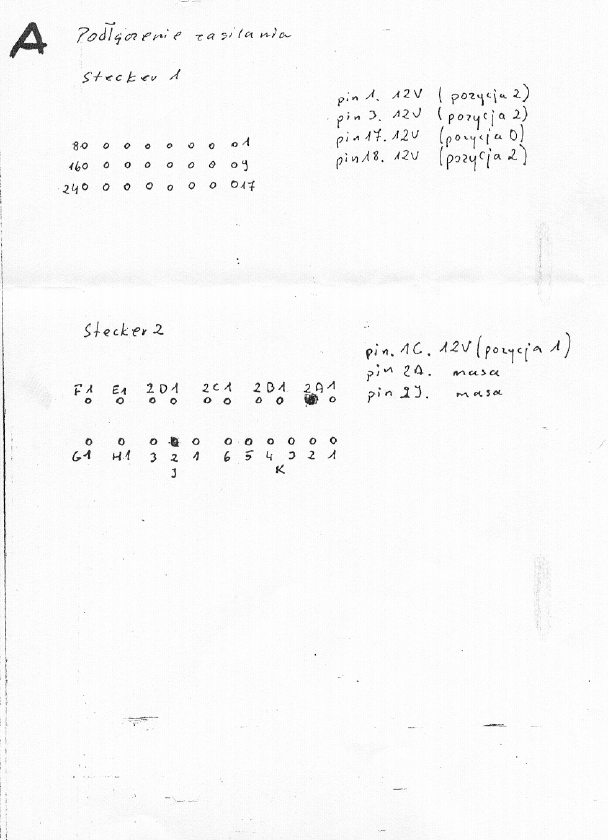 A Podłączenie zasilania
Stecker 1
pin 1. 12V (pozycja 2)
pin 3. 12V (pozycja 2)
pin 17. 12V (pozycja 0)
pin 18. 12V (pozycja 2)
8 1
16 9
24 17
Stecker 2
pin. 1C. 12V (pozycja 1)
pin 2A. masa
pin 2J. masa
F1 E1 2D1 2C1 2B1 2A1
G1 H1 3 2 1 6 5 4 3 2 1
J K